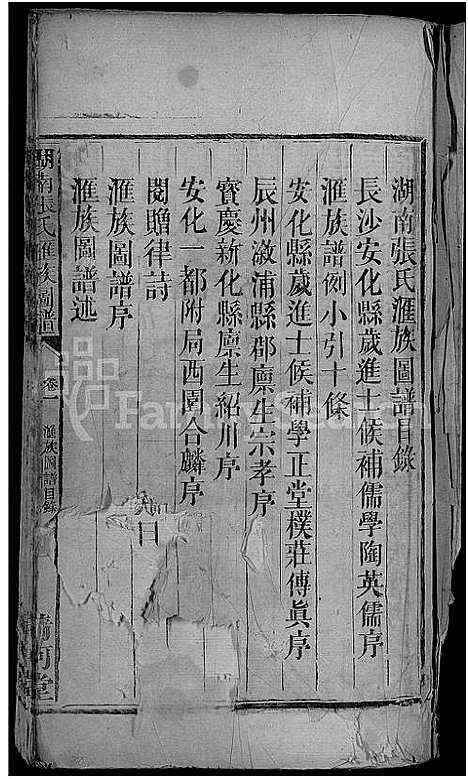 湖南張氏滙族圖譜目錄
長沙安化縣歲進士候補儒學陶英儒序
滙族譜例小引十條
安化縣歲進士候補學正堂樸莊傳眞序
辰州漵浦縣郡廩生宗孝序
寳慶新化縣廩生紹川序
安化一都附局西園合麟序
閱贈律詩
滙族圖譜序
滙族圖譜述
湖南張氏滙族圖譜
卷一
滙族圖譜目錄
清河堂